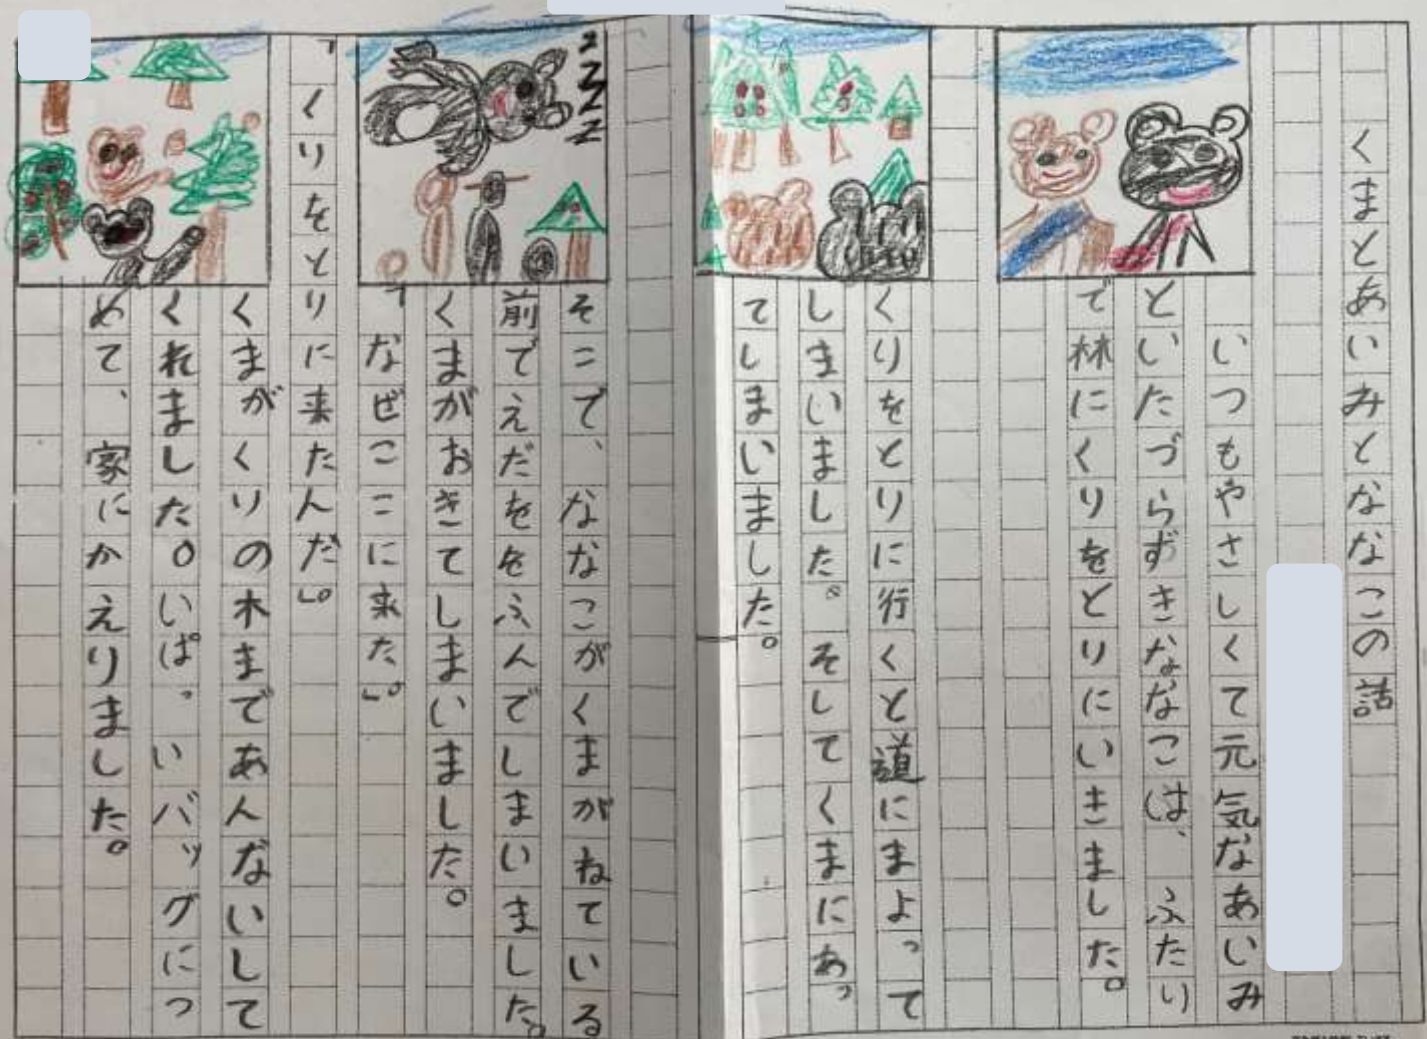 くまとあいみとななこの話
いつもやさしくて元気なあいみ
といたづらずきなななこは、ふたり
で林にくりをとりにいきました。
くりをとりに行くと道にまよって
しまいました。そしてくまにあっ
てしまいました。
そこで、ななこがくまがねている
前でえだををふんでしまいました。
くまがおきてしまいました。
「なぜここに来た」。
「くりをとりに来たんだ」。
くまがくりの木まであんないして
くれました。いぱっいバッグにつ
めて、家にかえりました。
ZZZZ